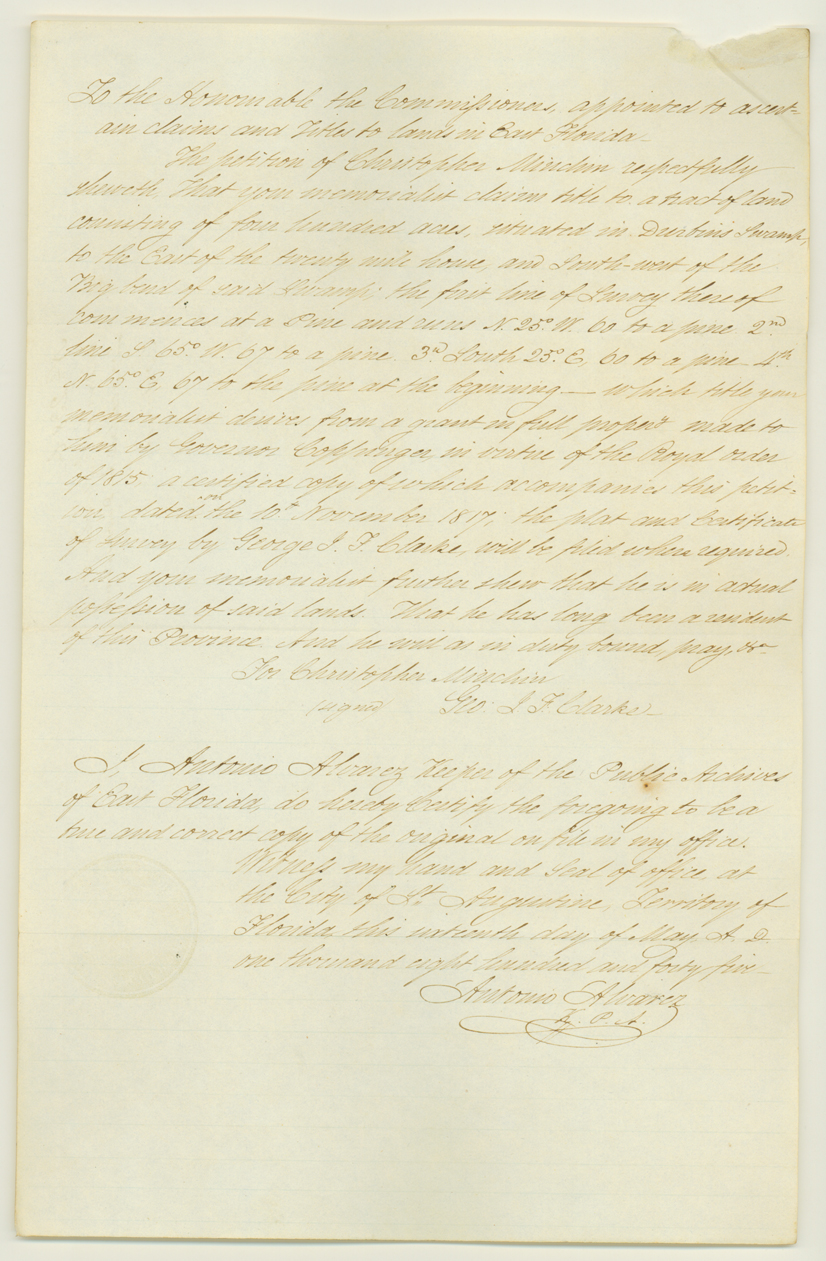 To the Honourable the Commissioners, appointed to ascert=
ain claims and Titles to lands in East Florida—
The petition of Christopher Minchin respectfully
sheweth, That your memorialist claims title to a tract of land
consisting of four hundred acres, situated in Durbin's Swamp,
to the East of the twenty mile house, and South-west of the
Big bend of said Swamp; the first line of Survey thereof
commences at a Pine and runs N. 25°. W. 60 to a pine 2nd
line S. 65°. W. 67 to a pine. 3d South 25°. E, 60 to a pine 4th
N. 65°. E, 67 to the pine at the beginning — which title your
memorialist derives from a grant in full property made to
him by Governor Coppinger in virtue of the Royal order
of 1815 a certified copy of which accompanies this petit=
ion, dated on the 10th November 1817; the plat and Certificate
of survey by George J. F. Clarke, will be filed when required.
And your memorialist further shew that he is in actual
possession of said lands. That he has long been a resident
of this Province. And he will as in duty bound, pray, &c
For Christopher Minchin
(signed) Geo. J. F. Clarke—
I, Antonio Alvarez Keeper of the Public Archives
of East Florida, do hereby Certify the foregoing to be a
true and correct copy of the original on file in my office.
Witness my hand and Seal of office, at
the City of St. Augustine, Territory of
Florida, this sixteenth day of May, A. D.
one thousand eight hundred and forty five—
Antonio Alvarez
K. P. A.